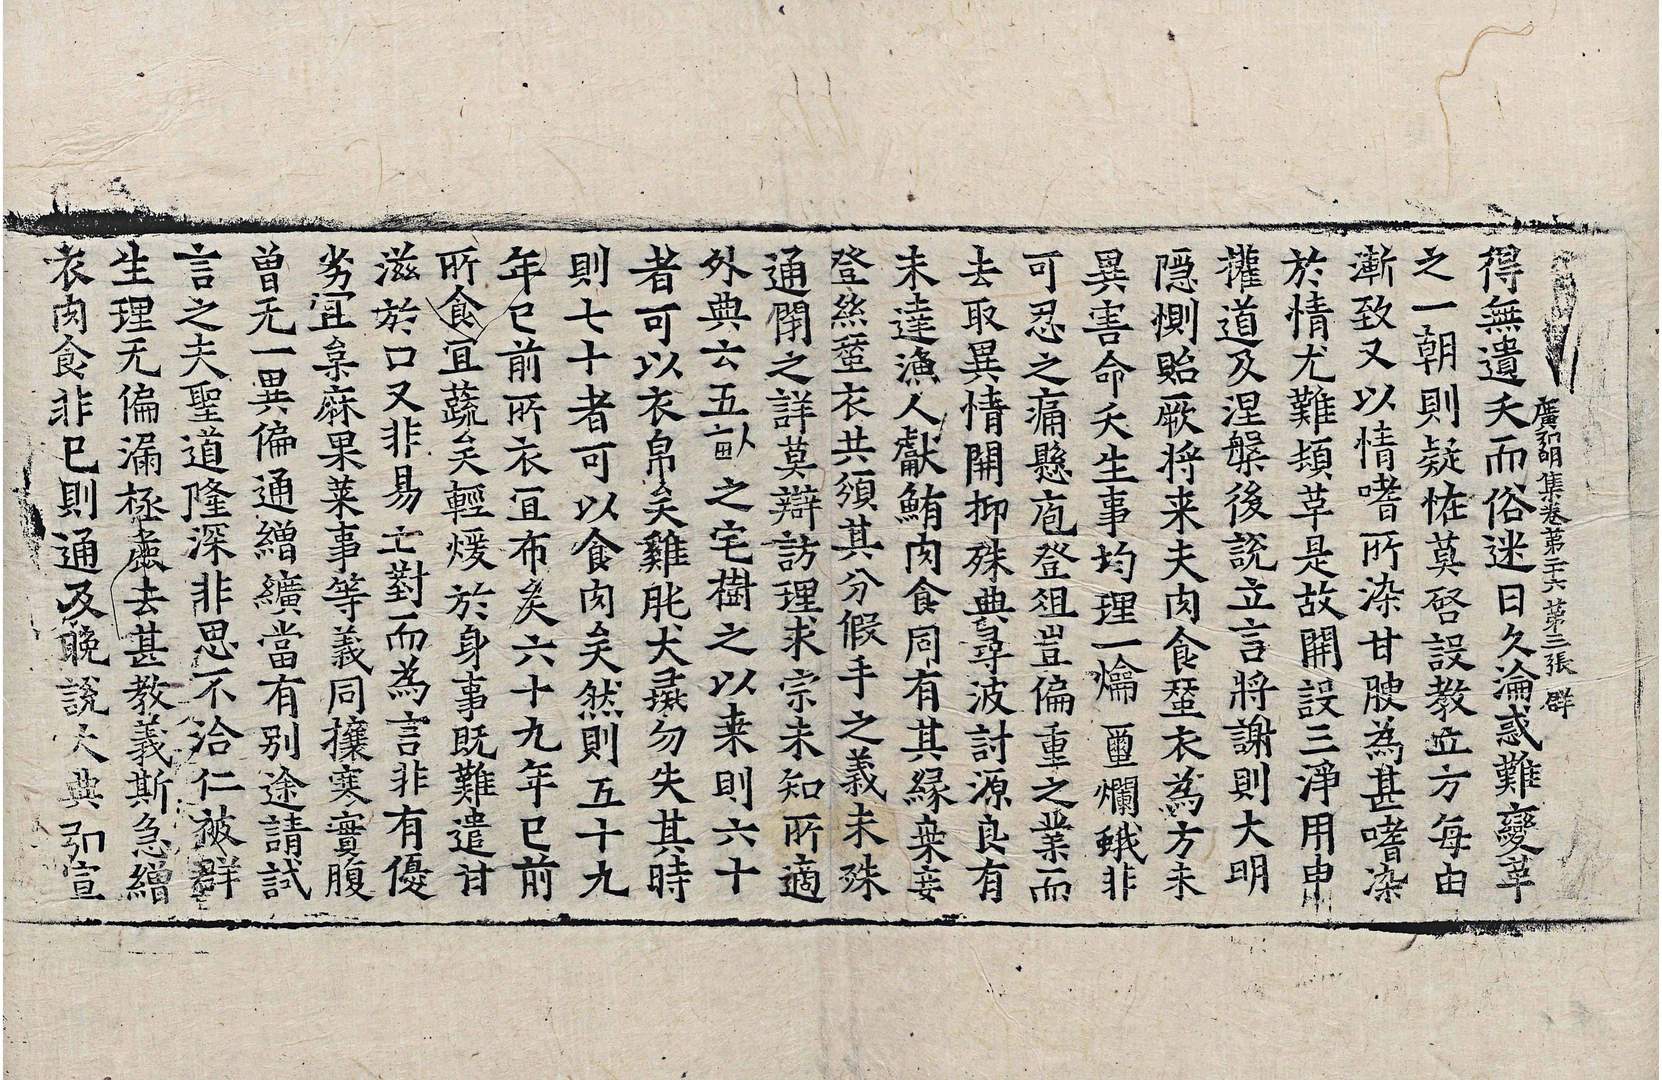 廣弘明集卷第二十六 第三張 群
得無遺夭而俗迷日久淪惑難變革
之一朝則疑恠莫啓設教立方每由
漸致又以情嗜所染甘腴為甚嗜染
於情尤難頓革是故開設三淨用申
權道及涅槃後說立言將謝則大明
隱惻貽厥将来夫肉食蚕衣為方未
異害命夭生事均理一爚璽爛蛾非
可忍之痛懸庖登俎豈偏重之業而
去取異情開抑殊典尋波討源良有
未達漁人獻鮪肉食同有其縁枲妾
登絲蚕衣共須其分假手之義未殊
通閇之詳莫辯訪理求宗未知所適
外典云五畝之宅樹之以来則六十
者可以衣帛矣雞肫犬彘勿失其時
則七十者可以食肉矣然則五十九
年已前所衣冝布矣六十九年已前
所食冝蔬矣輕煖於身事既難遣甘
滋於口又非易亡對而為言非有優
劣冝枲麻果菜事等義同攘寒實腹
曾无一異偏通繒纊當有别途請試
言之夫聖道隆深非思不洽仁被群
生理无偏漏極蟲去甚教義斯急繒
衣肉食非已則通及晚說大典弘宣